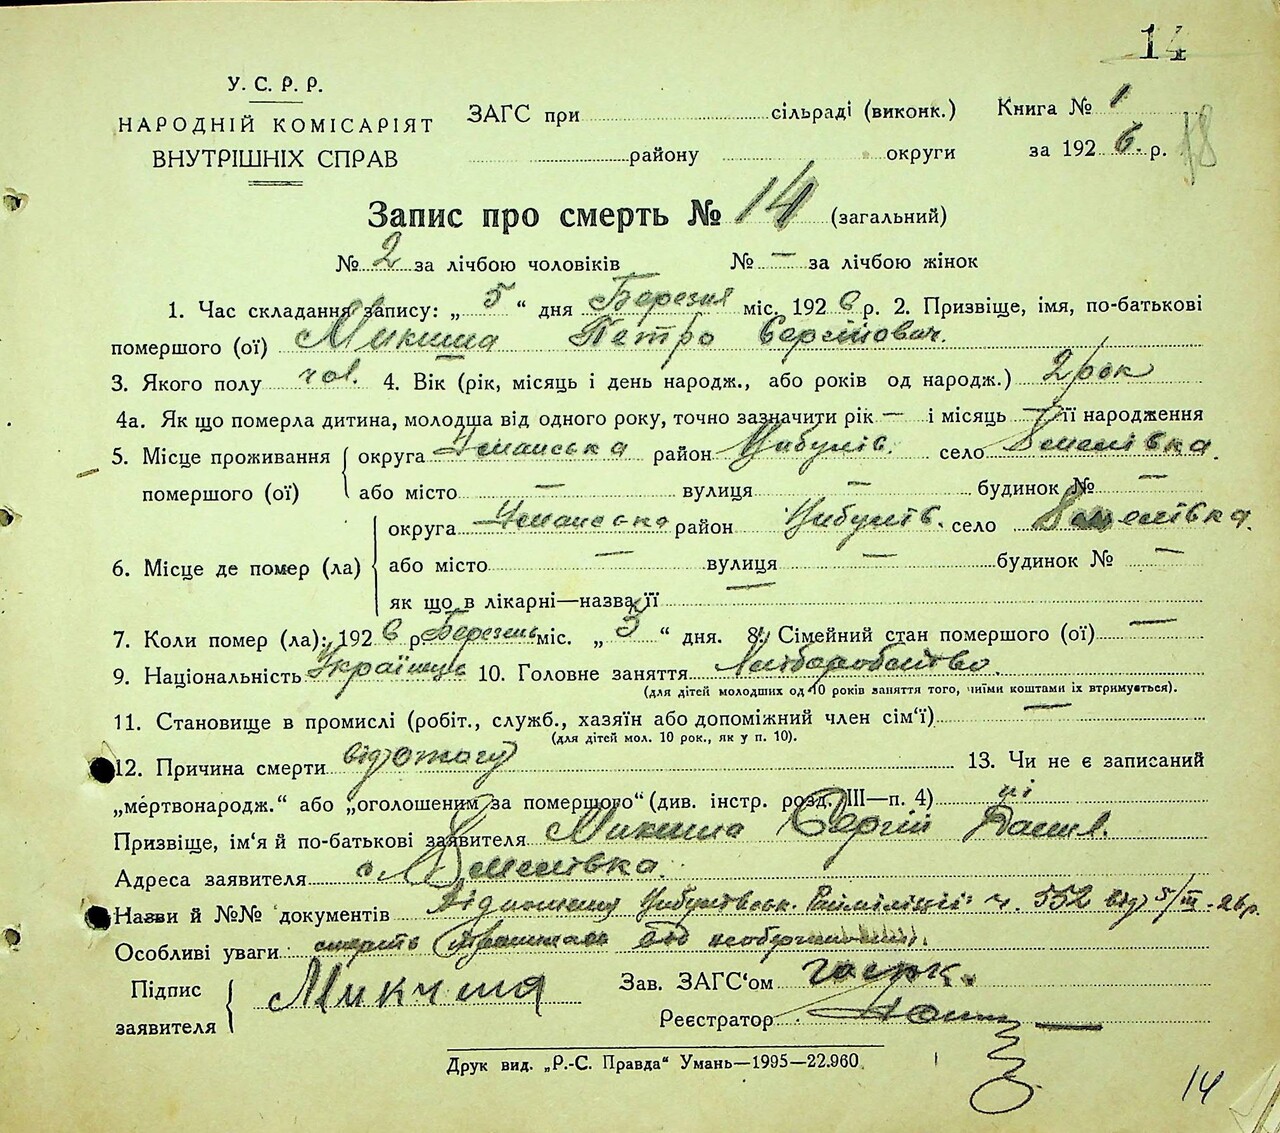 14
18
У. С. Р. Р.
НАРОДНІЙ КОМІСАРІЯТ
ВНУТРІШНІХ СПРАВ
ЗАГС при сільраді (виконк.) Книга № 1
району округи за 1926. р.
Запис про смерть № 14 (загальний)
№ 2 за лічбою чоловіків № — за лічбою жінок
1. Час складання запису: „ 5 “ дня Березня міс. 1926 р. 2. Призвіще, імя, по-батькові
помершого (ої) Микиша Петро
3. Якого полу чол. 4. Вік (рік, місяць і день народж., або років од народж.) 2 рок
4а. Як що померла дитина, молодша від одного року, точно зазначити рік — і місяць — її народження
5. Місце проживання помершого (ої) округа Уманська район Цибулів. село
або місто — вулиця — будинок № —
6. Місце де помер (ла) округа Уманська район Цибулів. село
або місто — вулиця — будинок № —
як що в лікарні—назва її —
7. Коли помер (ла): 1926 р. Березень міс. „ 5 “ дня. 8. Сімейний стан помершого (ої) —
9. Національність Українець 10. Головне заняття Хліборобство.
(для дітей молодших од 10 років заняття того, чиїми коштами їх втримується).
11. Становище в промислі (робіт., служб., хазяїн або допоміжний член сім‘ї) —
(для дітей мол. 10 рок., як у п. 10).
12. Причина смерти від ожогу 13. Чи не є записаний
„мертвонародж.“ або „оголошеним за помершого“ (див. інстр. розд. III—п. 4) ні
Призвіще, ім‘я й по-батькові заявителя Микиша Сергій Данил.
Адреса заявителя с.
Назви й №№ документів Відношення Цибулівськ. Райміліції ч. 552 від 5/III-26р.
Особливі уваги смерть
Підпис заявителя Микиша Зав. ЗАГС‘ом
Реєстратор
Друк вид. „Р.-С. Правда“ Умань—1995—22.960.
14